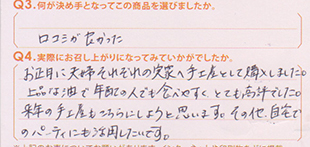 Q3.何が決め手となってこの商品を選びましたか。
口コミが良かった
Q4.実際にお召し上がりになってみていかがでしたか。
お正月に夫婦それぞれの実家へ手土産として購入しました。
上品な油で年配の人でも食べやすくとても好評でした。
来年の手土産もこちらにしようと思います。その他、自宅で
のパーティにも活用したいです。